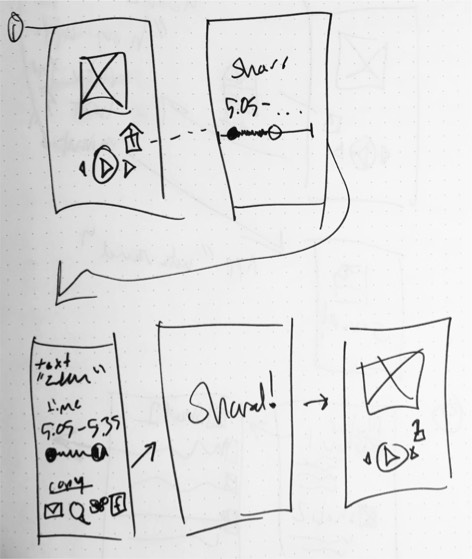 Share
5.05-...
text
time
5.05-5.35
copy
Shared!